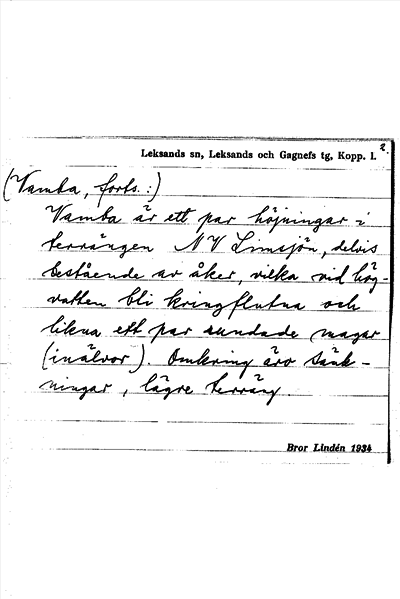 2.
Leksands sn, Leksands och Gagnefs tg, Kopp. l.
(Vamba, forts.:)
Vamba är ett par höjningar i
terrängen NV Limsjön, delvis
bestående av åker, vilka vid hög-
vatten bli kringflutna och
likna ett par rundade magar
(inälvor). Omkring äro sänk-
ningar, lägre terräng.
Bror Lindén 1934